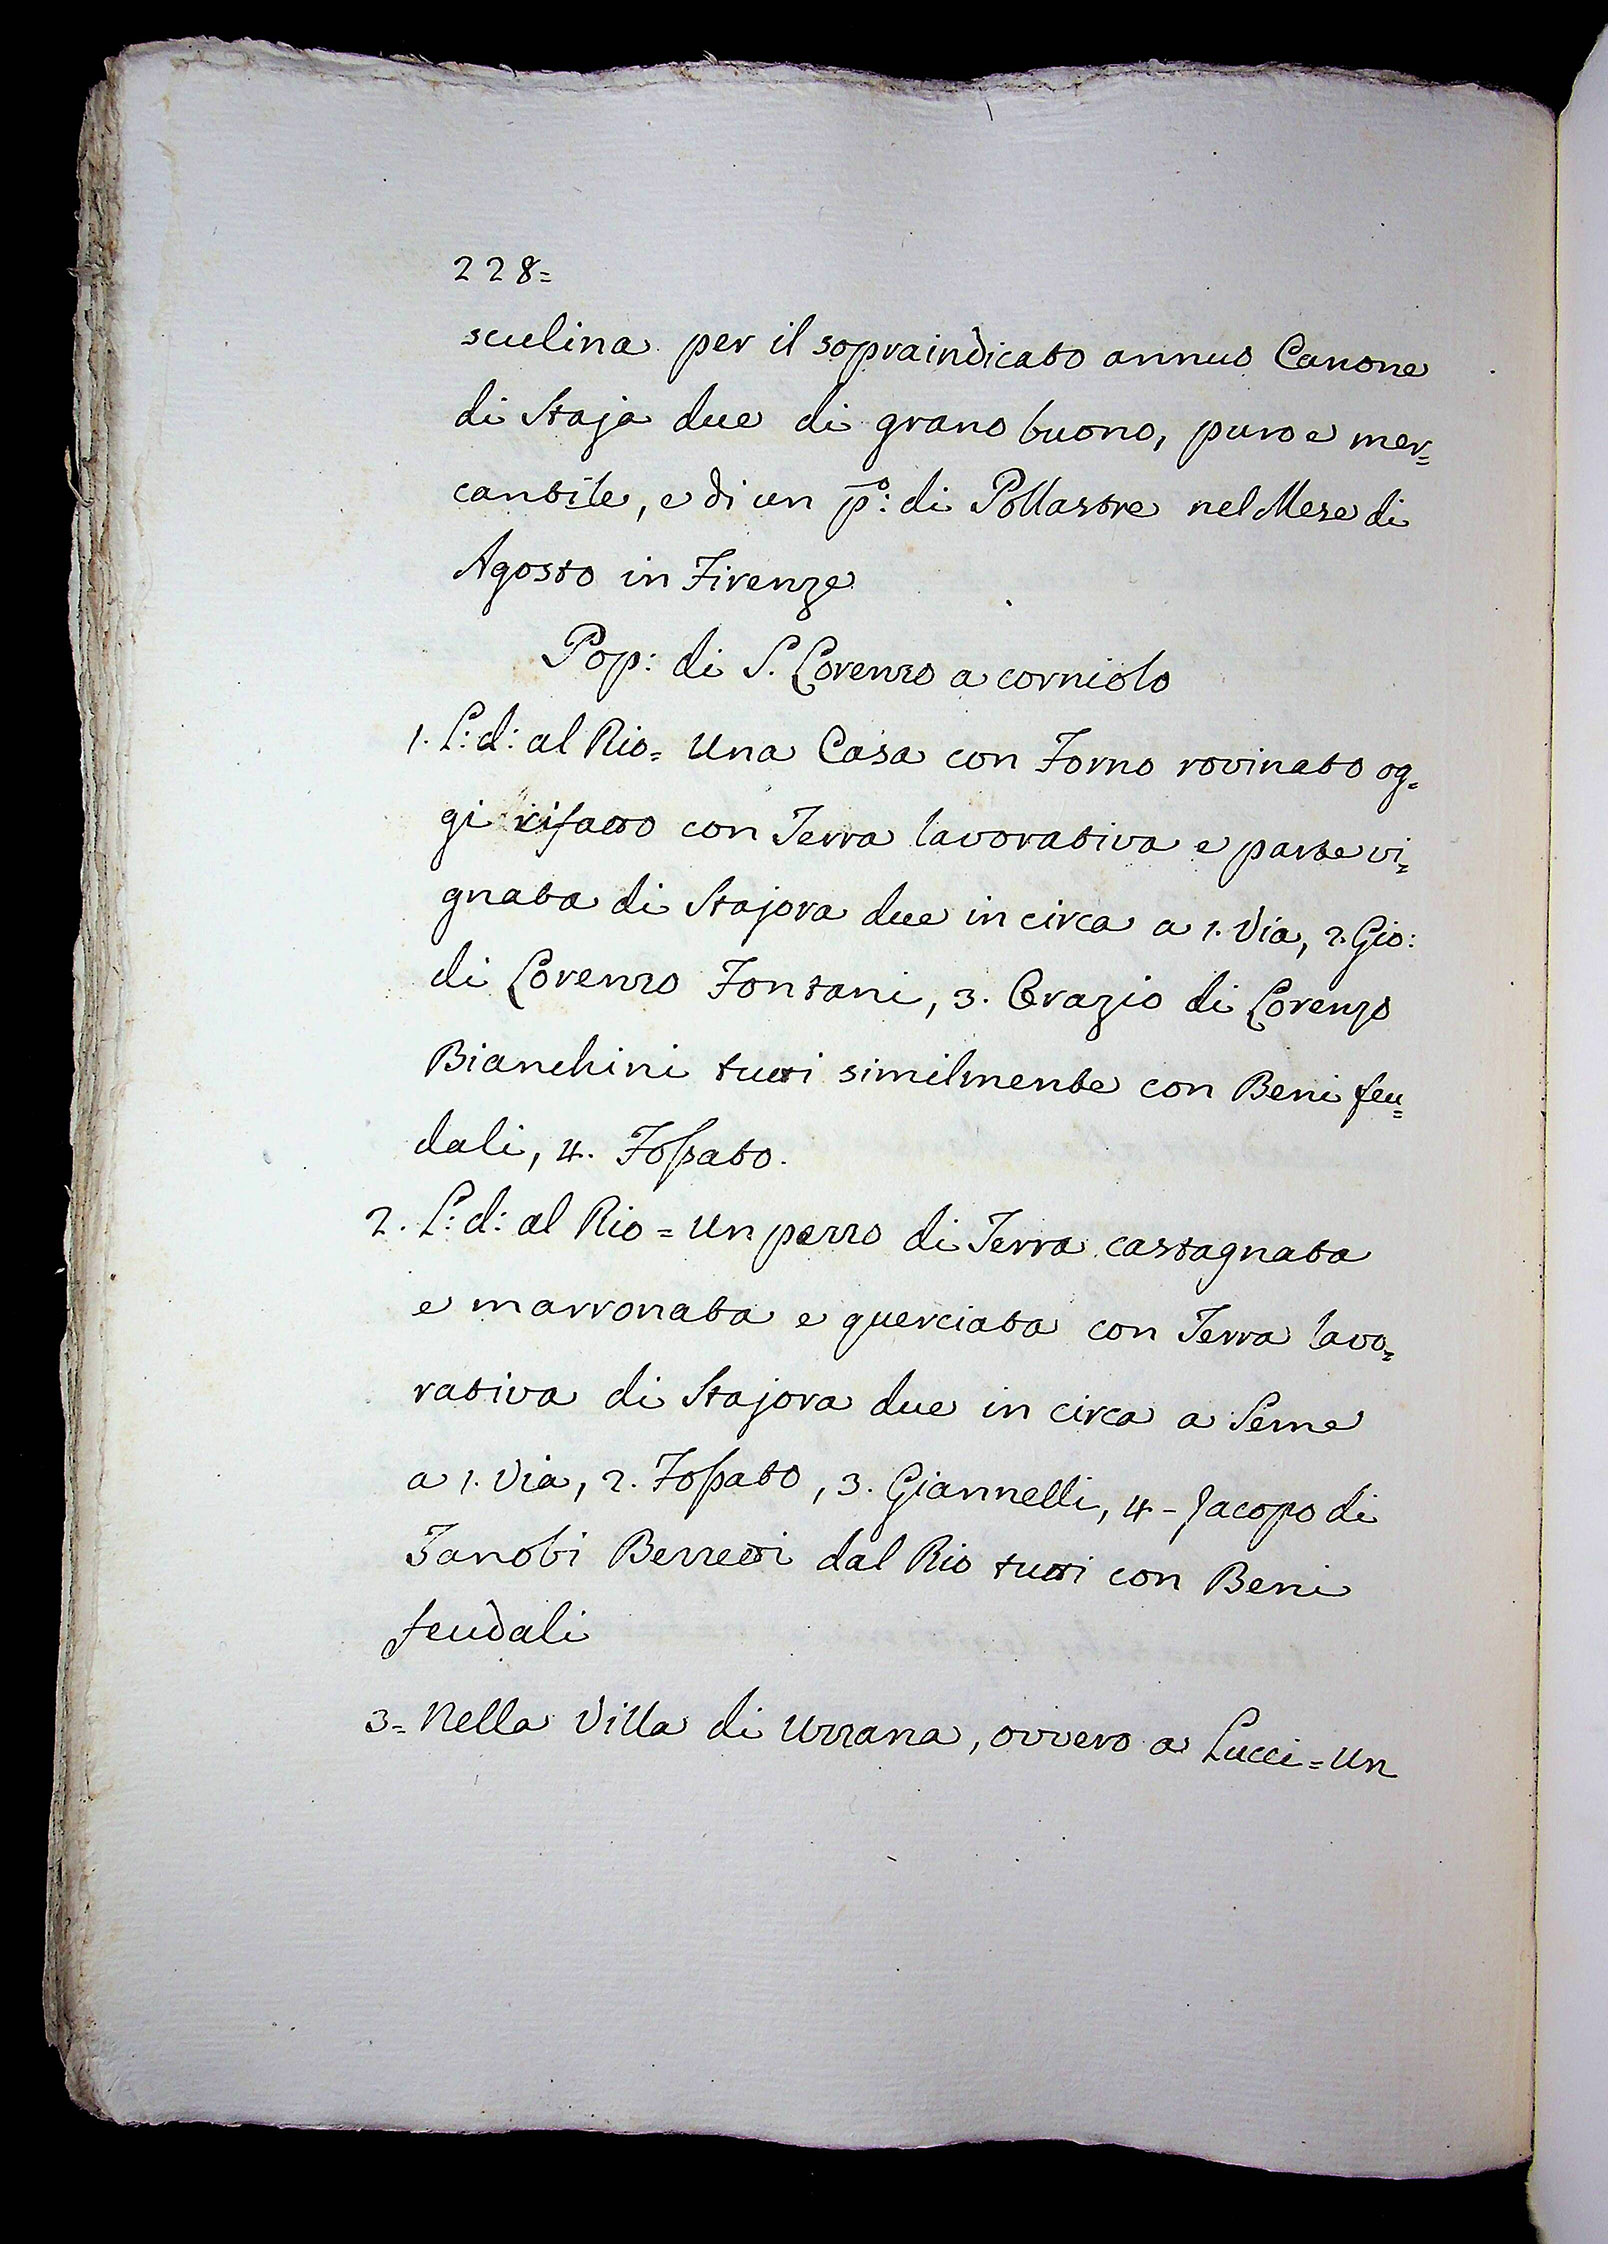 228=
sculina per il sopraindicato annuo Canone
di Staja due di grano buono, puro e mer=
cantile, e di un p.º: di Pollastre nel Mese di
Agosto in Firenze
Pop: di S. Lorenzo a corniolo
1. L: d: al Rio= Una Casa con Forno rovinato og=
gi rifatto con Terra lavorativa e parte vi=
gnata di Stajora due in circa a 1. Via, 2. Gio:
di Lorenzo Fontani, 3. Orazio di Lorenzo
Bianchini tutti similmente con Beni feu=
dali, 4. Fossato.
2. L: d: al Rio = Un pezzo di Terra castagnata
e marronata e querciata con Terra lavo=
rativa di Stajora due in circa a Seme
a 1. Via, 2. Fossato, 3. Giannelli, 4 - Jacopo di
Zanobi Berretti dal Rio tutti con Beni
feudali
3= Nella Villa di Uzzana, ovvero a Lucci = Un